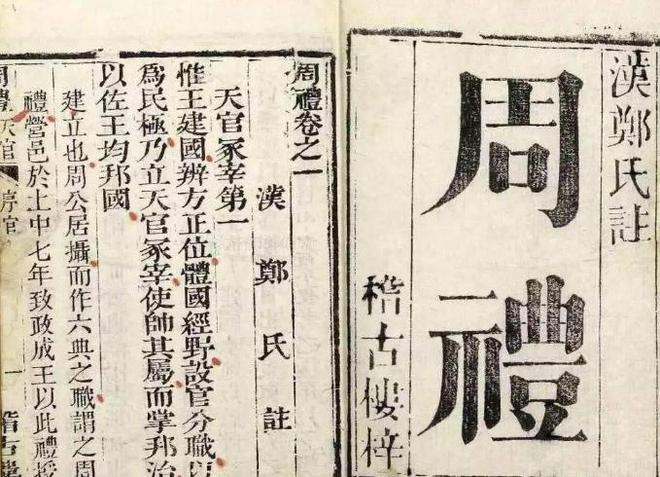 漢鄭氏註
周禮
稽古樓梓
周禮卷之一
漢鄭氏註
天官冢宰第一
惟王建國辨方正位體國經野設官分職以
為民極乃立天官冢宰使帥其屬而掌邦治
以佐王均邦國
建立也周公居攝而作六典之職謂之周
禮營邑於土中七年致政成王以此禮授
周禮天官 序官 一